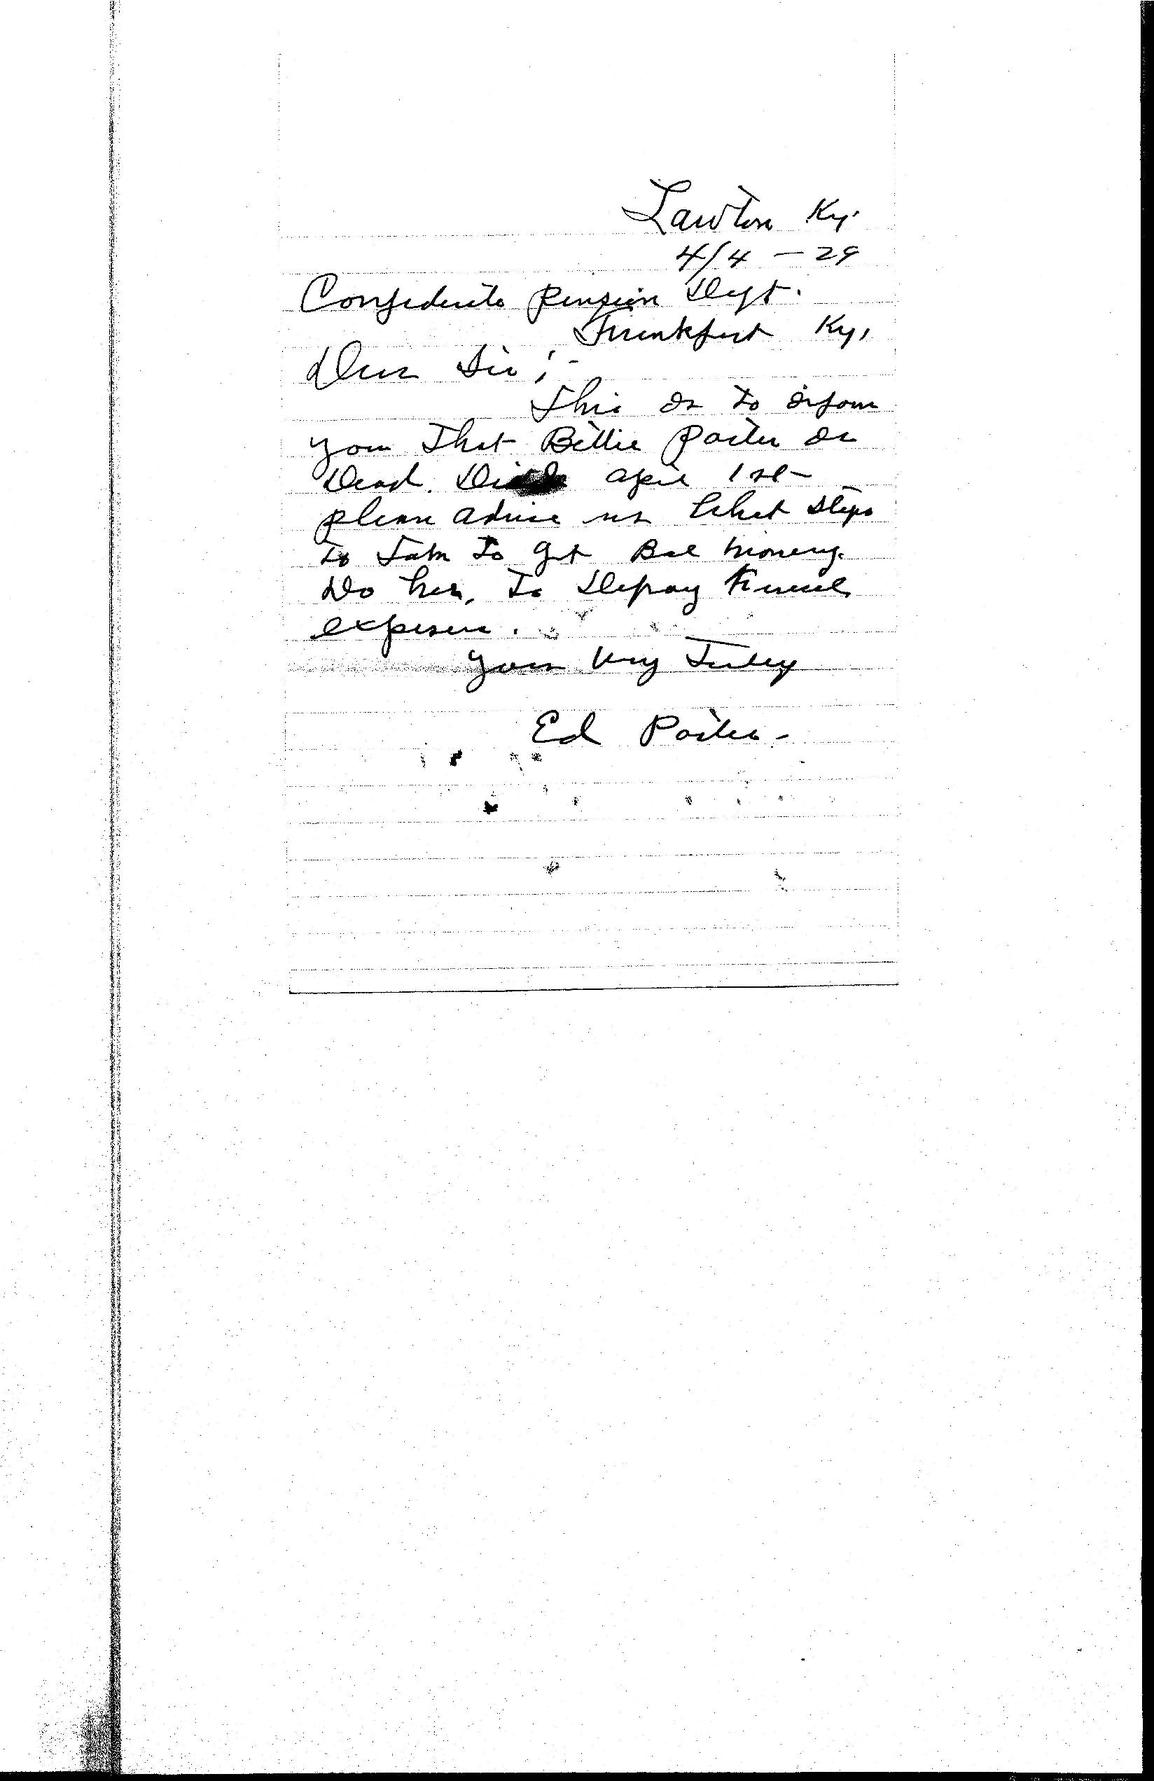 Lawton Ky.
4/4 - 29
Confederate Pension Dept.
Frankfort Ky,
Dear Sir;-
This is to inform
you That Billie Porter is
Dead. Died April 1st
please advise us What Steps
to Take To get Bal money.
Do her, To Defray Funeral
expense.
Yours Very Truley
Ed Porter-